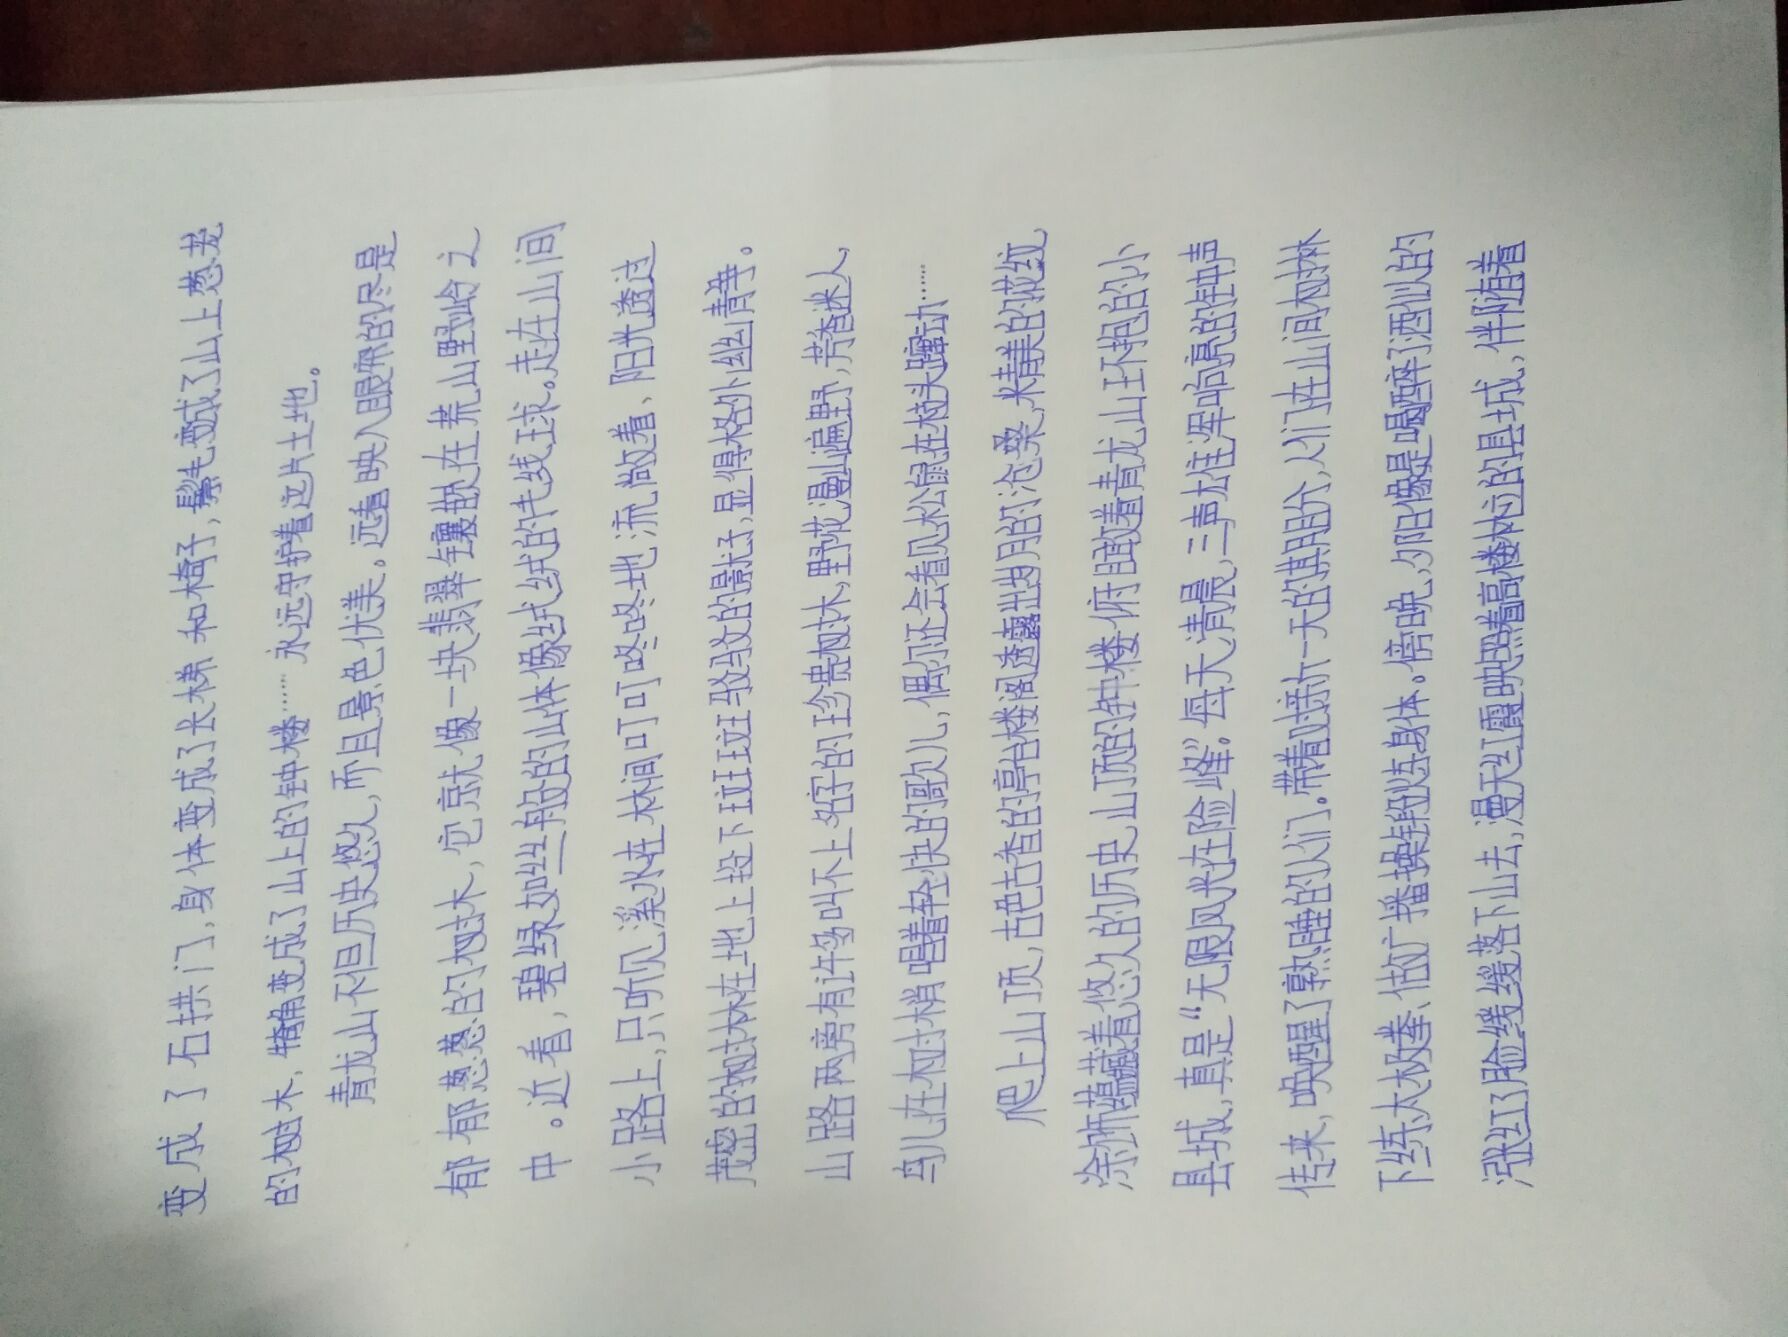 变成了石拱门，身体变成了长梯和椅子，鬃毛变成了山上葱茏
的树木，犄角变成了山上的钟楼……永远守护着这片土地。
青龙山不但历史悠久，而且景色优美。远看映入眼帘的尽是
郁郁葱葱的树木，它就像一块翡翠镶嵌在荒山野岭之
中。近看，碧绿如丝般的山体像绒绒的毛线球。走在山间
小路上，只听见溪水在林间叮叮咚咚地流淌着、阳光透过
茂密的树林在地上投下斑斑驳驳的影子，显得格外幽静。
山路两旁有许多叫不上名字的珍贵树木，野花漫山遍野，芳香迷人，
鸟儿在树梢唱着轻快的歌儿，偶尔还会看见松鼠在枝头蹿动……
爬上山顶，古色古香的亭台楼阁透露出岁月的沧桑，精美的花纹，
涂饰蕴藏着悠久的历史，山顶的钟楼俯瞰着青龙山环抱的小
县城，真是“无限风光在险峰”。每天清晨，三声雄浑响亮的钟声
传来，唤醒了熟睡的人们。带着对新一天的期盼，人们在山间树林
下练太极拳、做广播操锻炼身体。傍晚，夕阳像是喝醉了酒似的
涨红了脸缓缓落下山去，漫天红霞映照着高楼林立的县城，伴随着